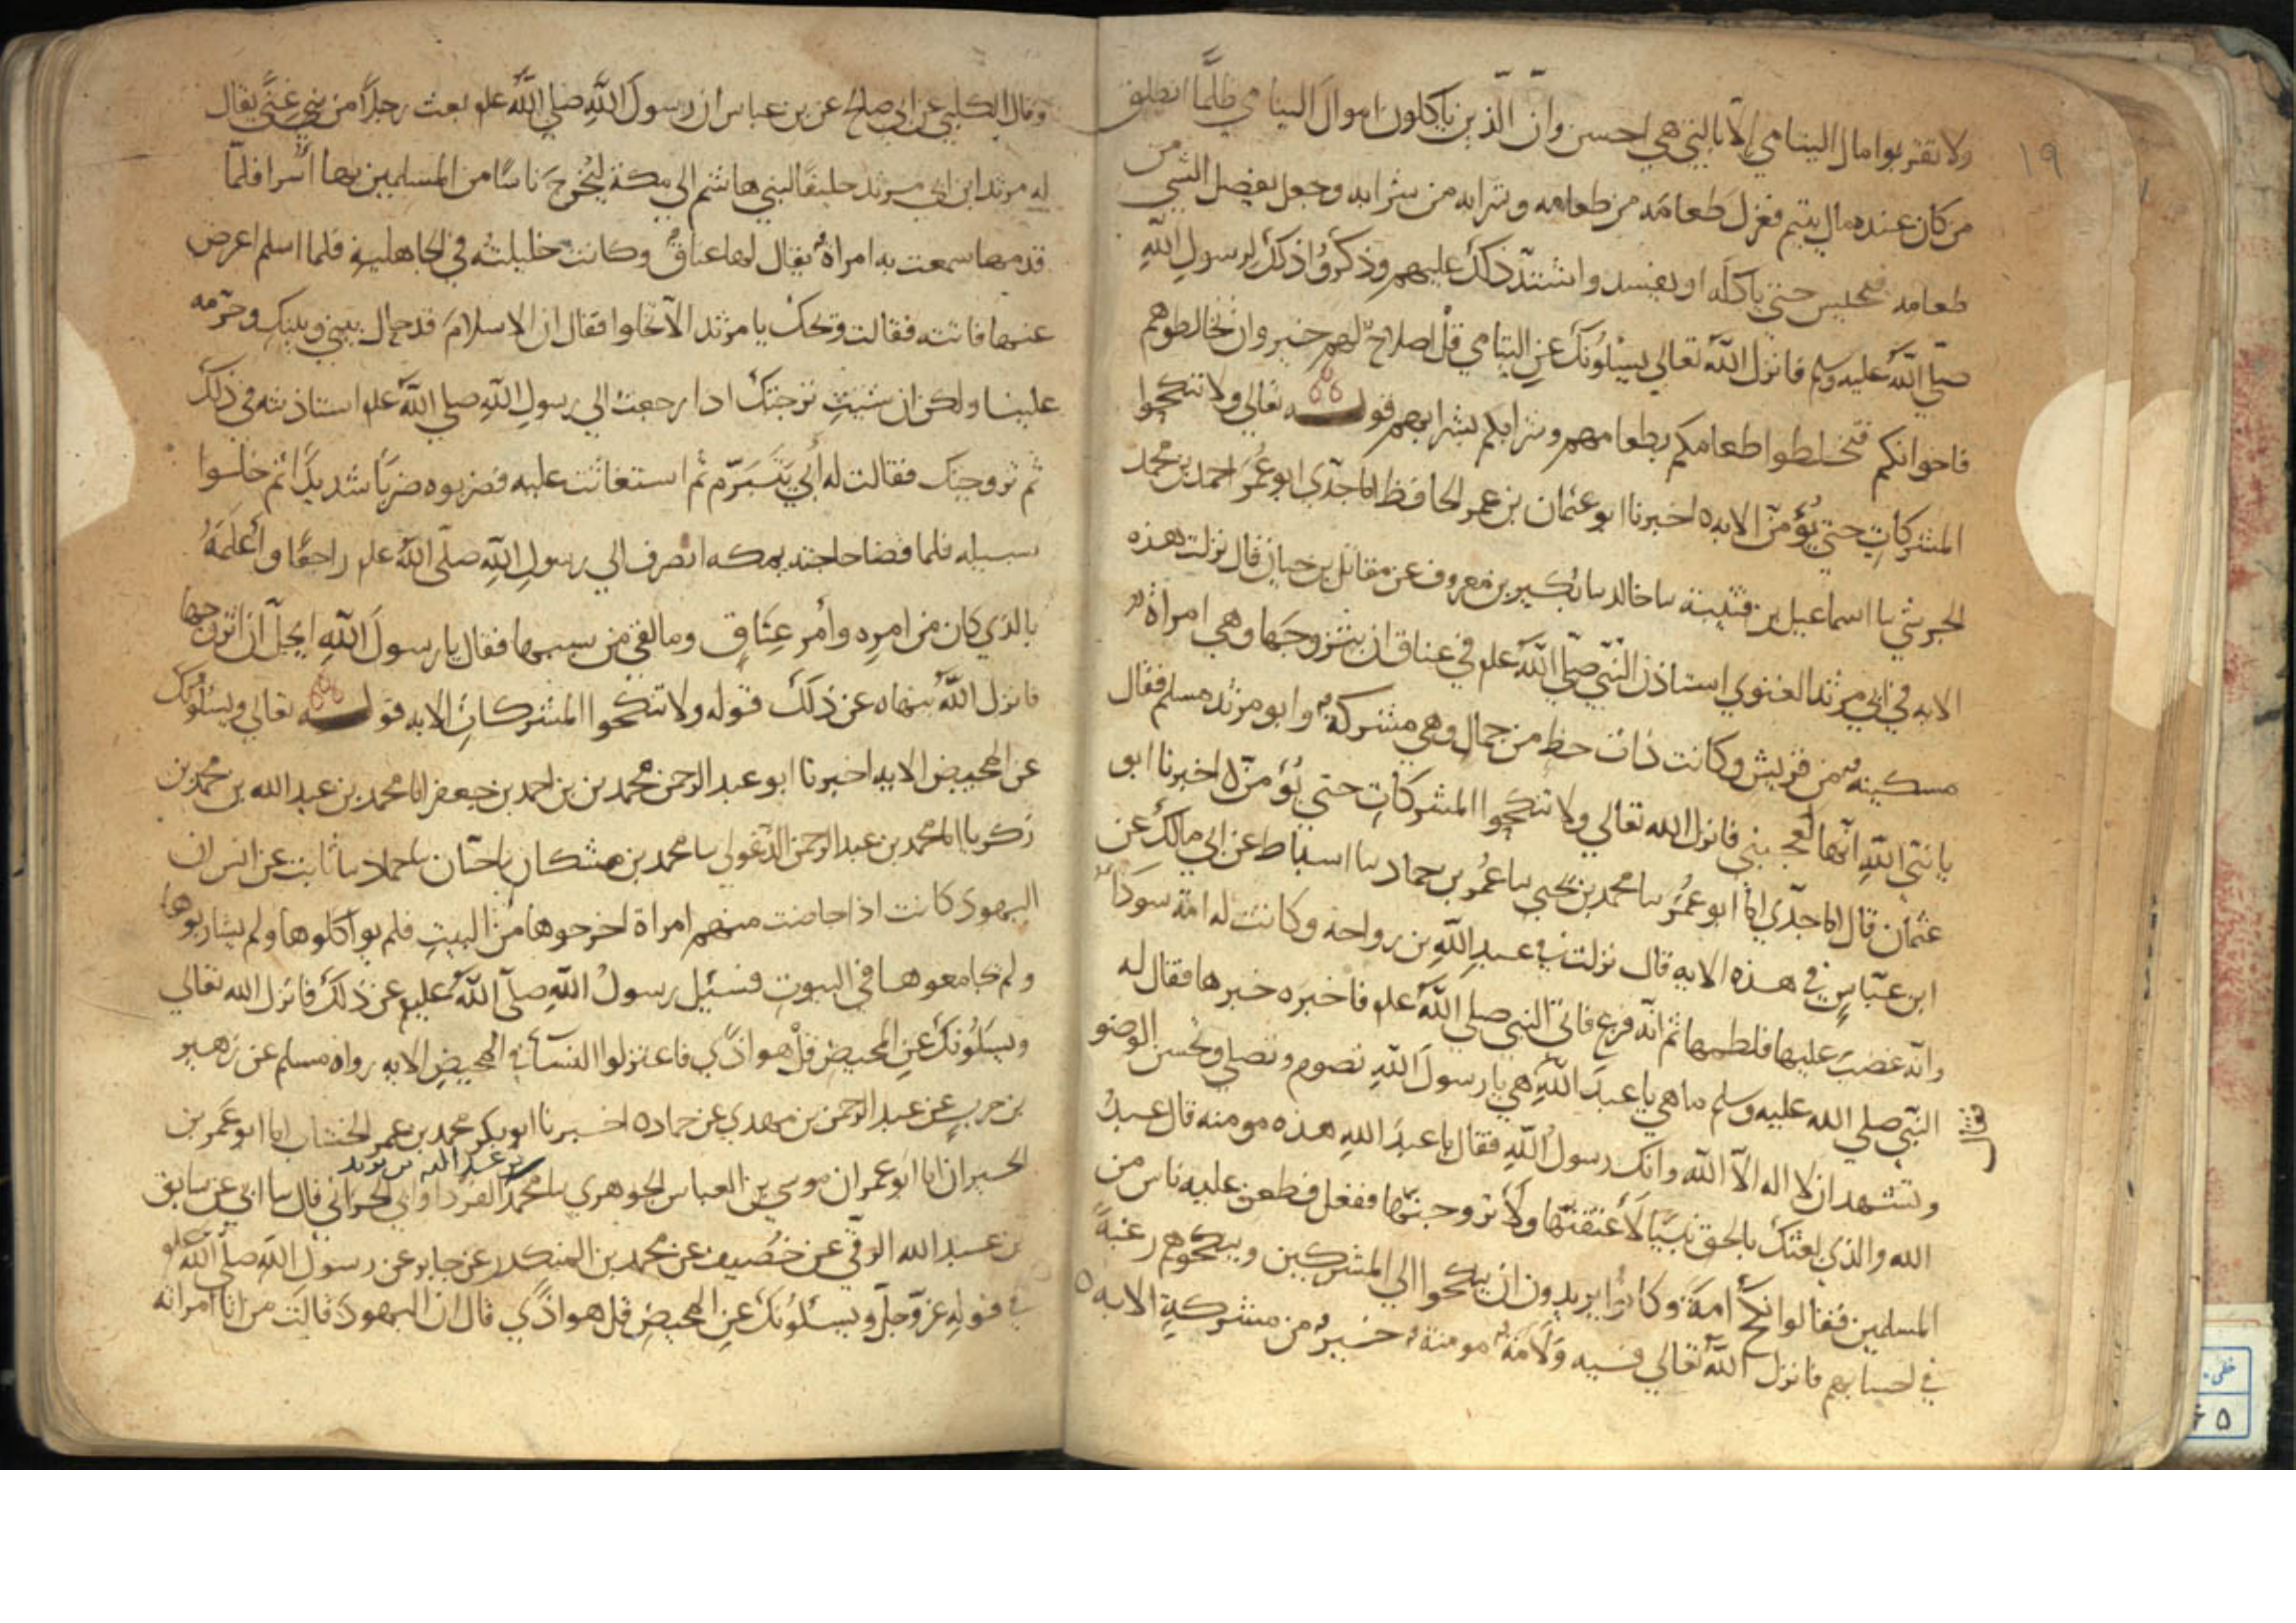 ١٩
ولا تقربوا مال اليتامي الا بالتي هي احسن وانّ الّذين ياكلون اموال اليتامي ظلمًا انطلق
من كان عنده مال يتيم فعزل طعامه من طعامه وشرابه من شرابه وجعل يفضل الشي من
طعامه فيحبس حتي ياكله او يفسد واشتدّ ذلك عليهم وذكروا ذلك لرسول اللّه
صلّي اللّه عليه وسلم فانزل اللّه تعالي يسئلونك عن اليتامي قل اصلاح لهم خير وان تخالطوهم
فاخوانكم فتخلطوا طعامكم بطعامهم وشرابكم بشرابهم قولـه تعالي ولا تنكحوا
المشركات حتي يؤمنّ الايه ٥ اخبرنا ابو عثمان بن عمر الحافظ انا جدّي ابو عمر احمد بن محمد
الجرشي نا اسماعيل بن قتيبة نا خالد نا بكير بن معروف عن مقاتل بن حيان قال نزلت هذه
الايه في ابي مرثد الغنوي استاذن النّبي صلّي اللّه علم في عناق ان يتزوجها وهي امراة
مسكينة من قريش وكانت ذات حظ من جمال وهي مشركة وابو مرثد مسلم فقال
يا نبيّ اللّه انّها لتعجبني فانزل الله تعالي ولا تنكحوا المشركات حتي يؤمنّ ٥ اخبرنا ابو
عثمان قال انا جدّي انا ابو عمر نا محمد بن يحيي نا عمر بن حماد نا اسباط عن ابي مالك عن
ابن عبّاس في هذه الايه قال نزلت في عبد اللّه بن رواحه وكانت له امة سودا
وانّه غضب عليها فلطمها ثم انّه فزع فاتي النبي صلي اللّه علم فاخبره خبرها فقال له
النّبي صلي الله عليه وسلم ما هي يا عبد اللّه هي يا رسول اللّه تصوم وتصلي وتحسن الوضو
وتشهد ان لا اله الاّ اللّه وانك رسول اللّه فقال يا عبد اللّه هذه مومنه قال عبد
الله والذي بعثك بالحق نبيّا لأعتقنّها ولأتزوجنّها ففعل فطعن عليه ناس من
المسلمين فقالوا نكح أمة وكانوا يريدون ان ينكحوا الي المشركين وينكحوهم رغبة
في احسابهم فانزل اللّه تعالي فيه ولأمة مومنة خير من مشركة الايه ٥
وقال الكلبي عن ابي صالح عن بن عباس ان رسول اللّه صلي اللّه علم بعث رجلًا من بني غنيّ يقال
له مرثد ابن ابي مرثد حليفًا لبني هاشم الي مكة ليخرج ناسًا من المسلمين بها أسرا فلمّا
قدمها سمعت به امراة يقال لها عناق وكانت خليلته في الجاهلية فلما اسلم اعرض
عنها فاتته فقالت ويحك يا مرثد الا تخلوا فقال ان الاسلام قد حال بيني وبينك وحرّمه
علينا ولكن ان شئت تزوجتك اذا رجعت الي رسول اللّه صلي اللّه علم استاذنته في ذلك
ثم تزوجتك فقالت له أبي تتبرّم ثم استغاثت عليه فضربوه ضربًا شديدًا ثم خلوا
سبيله فلما قضا حاجته بمكه انصرف الي رسول اللّه صلّي اللّه علم راجعًا وأعلمه
بالذي كان من امره وأمر عناق وما لقي من سببها فقال يا رسول اللّه ايحلّ ان اتزوجها
فانزل اللّه ينهاه عن ذلك قوله ولا تنكحوا المشركات الايه قولـه تعالي ويسئلونك
عن المحيض الايه اخبرنا ابو عبد الرحمن محمد بن بن احمد بن جعفر انا محمد بن عبد الله بن محمد بن
زكريا انا محمد بن عبد الرحمن الدّغولي نا محمد بن مشكان نا حبّان نا حماد نا ثابت عن انس ان
اليهود كانت اذا حاضت منهم امراة اخرجوها من البيت فلم يواكلوها ولم يشاربوها
ولم يجامعوها في البيوت فسئيل رسول اللّه صلّي اللّه عليم عن ذلك فانزل الله تعالي
ويسئلونك عن المحيض قل هو اذًي فاعتزلوا النسآ في المحيض الايه رواه مسلم عن زهير
بن حرب عن عبد الرحمن بن مهدي عن حماد ٥ اخبرنا ابو بكر محمد بن عمر الخشاب انا ابو عمر بن
بن عبد الله بن يزيد
الحيران انا ابو عمران موسي بن العباس الجوهري نا محمد القرداواني الحراني قال نا ابي عن سابق
بن عبد الله الرقّي عن خصيف عن محمد بن المنكدر عن جابر عن رسول اللّه صلّي اللّه علم
في قوله عزّ وجلّ ويسئلونك عن المحيض قل هو اذًي قال ان اليهود قالت من اتا امراته
خطي